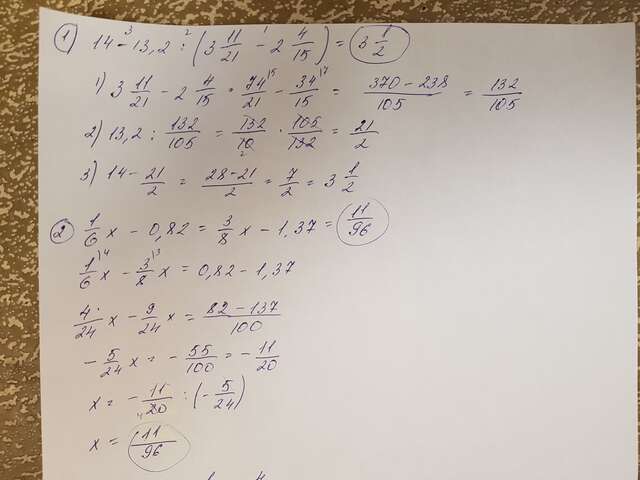 ① 14 - 13,2 : (3 11/21 - 2 4/15) = 3 1/2
1) 3 11/21 - 2 4/15 = 74/21 - 34/15 = (370 - 238)/105 = 132/105
2) 13,2 : 132/105 = 132/10 · 105/132 = 21/2
3) 14 - 21/2 = (28 - 21)/2 = 7/2 = 3 1/2
② 1/6 x - 0,82 = 3/8 x - 1,37 = 11/96
1/6 x - 3/8 x = 0,82 - 1,37
4/24 x - 9/24 x = (82 - 137)/100
- 5/24 x = - 55/100 = - 11/20
x = - 11/20 : (5/24)
x = 11/96